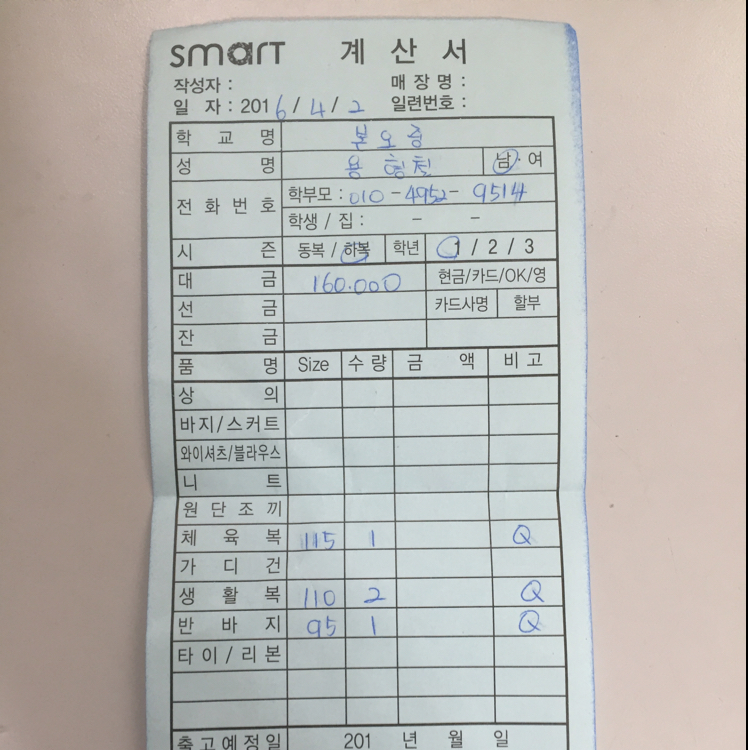 smart 계산서
작성자 : 매장명 :
일 자 : 2016/4/2 일련번호 :
학교명 본오중
성명 용 남·여
전화번호 학부모 : 010-4952-9514
학생 / 집 : - -
시즌 동복 / 하복 학년 1 / 2 / 3
대금 160.000 현금/카드/OK/영
선금 카드사명 할부
잔금
품명 Size 수량 금액 비고
상의
바지/스커트
와이셔츠/블라우스
니트
원단조끼
체육복 115 1 Q
가디건
생활복 110 2 Q
반바지 95 1 Q
타이/리본
출고예정일 201 년 월 일